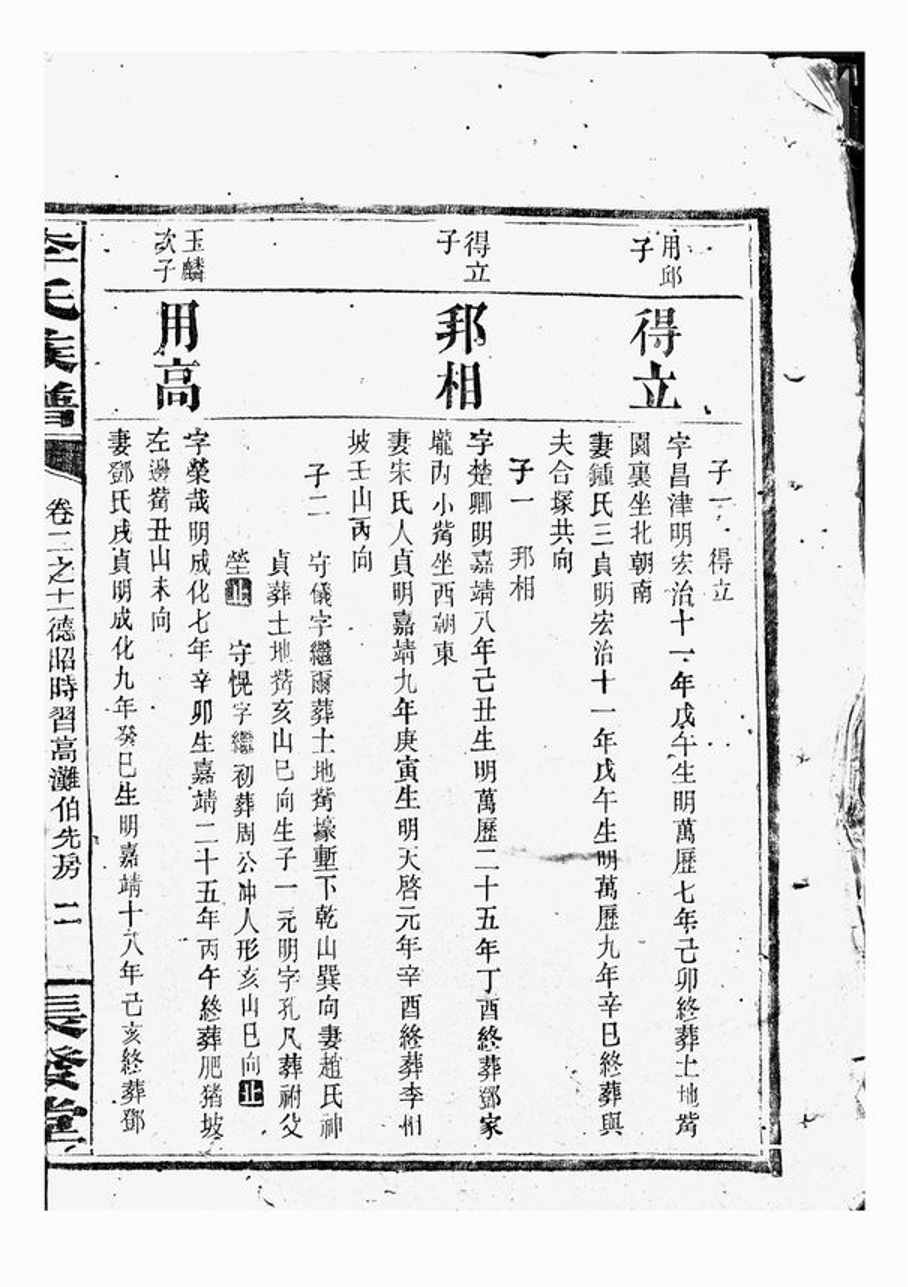 子一 得立
用邱
子
得立
字昌津明宏治十一年戊午生明萬歷七年己卯終葬土地嵴
園裏坐北朝南
妻鍾氏三貞明宏治十一年戊午生明萬歷九年辛巳終葬與
夫合塚共向
子一 邦相
得立
子
邦相
字楚卿明嘉靖八年己丑生明萬歷二十五年丁酉終葬鄧家
壠內小嵴坐西朝東
妻宋氏人貞明嘉靖九年庚寅生明天啓元年辛酉終葬李相
坡壬山丙向
子二 守儀字繼爾葬土地嵴壕塹下乾山巽向妻趙氏神
貞葬土地嵴亥山巳向生子一元明字孔凡葬祔父
塋止 守愰字繼初葬周公冲人形亥山巳向止
玉麟
次子
用高
字榮哉明成化七年辛卯生嘉靖二十五年丙午終葬肥猪坡
左邊嵴丑山未向
妻鄧氏戌貞明成化九年癸巳生明嘉靖十八年己亥終葬鄧
李氏族譜 卷二之十一德昭時習高灘伯先房 二 長發堂